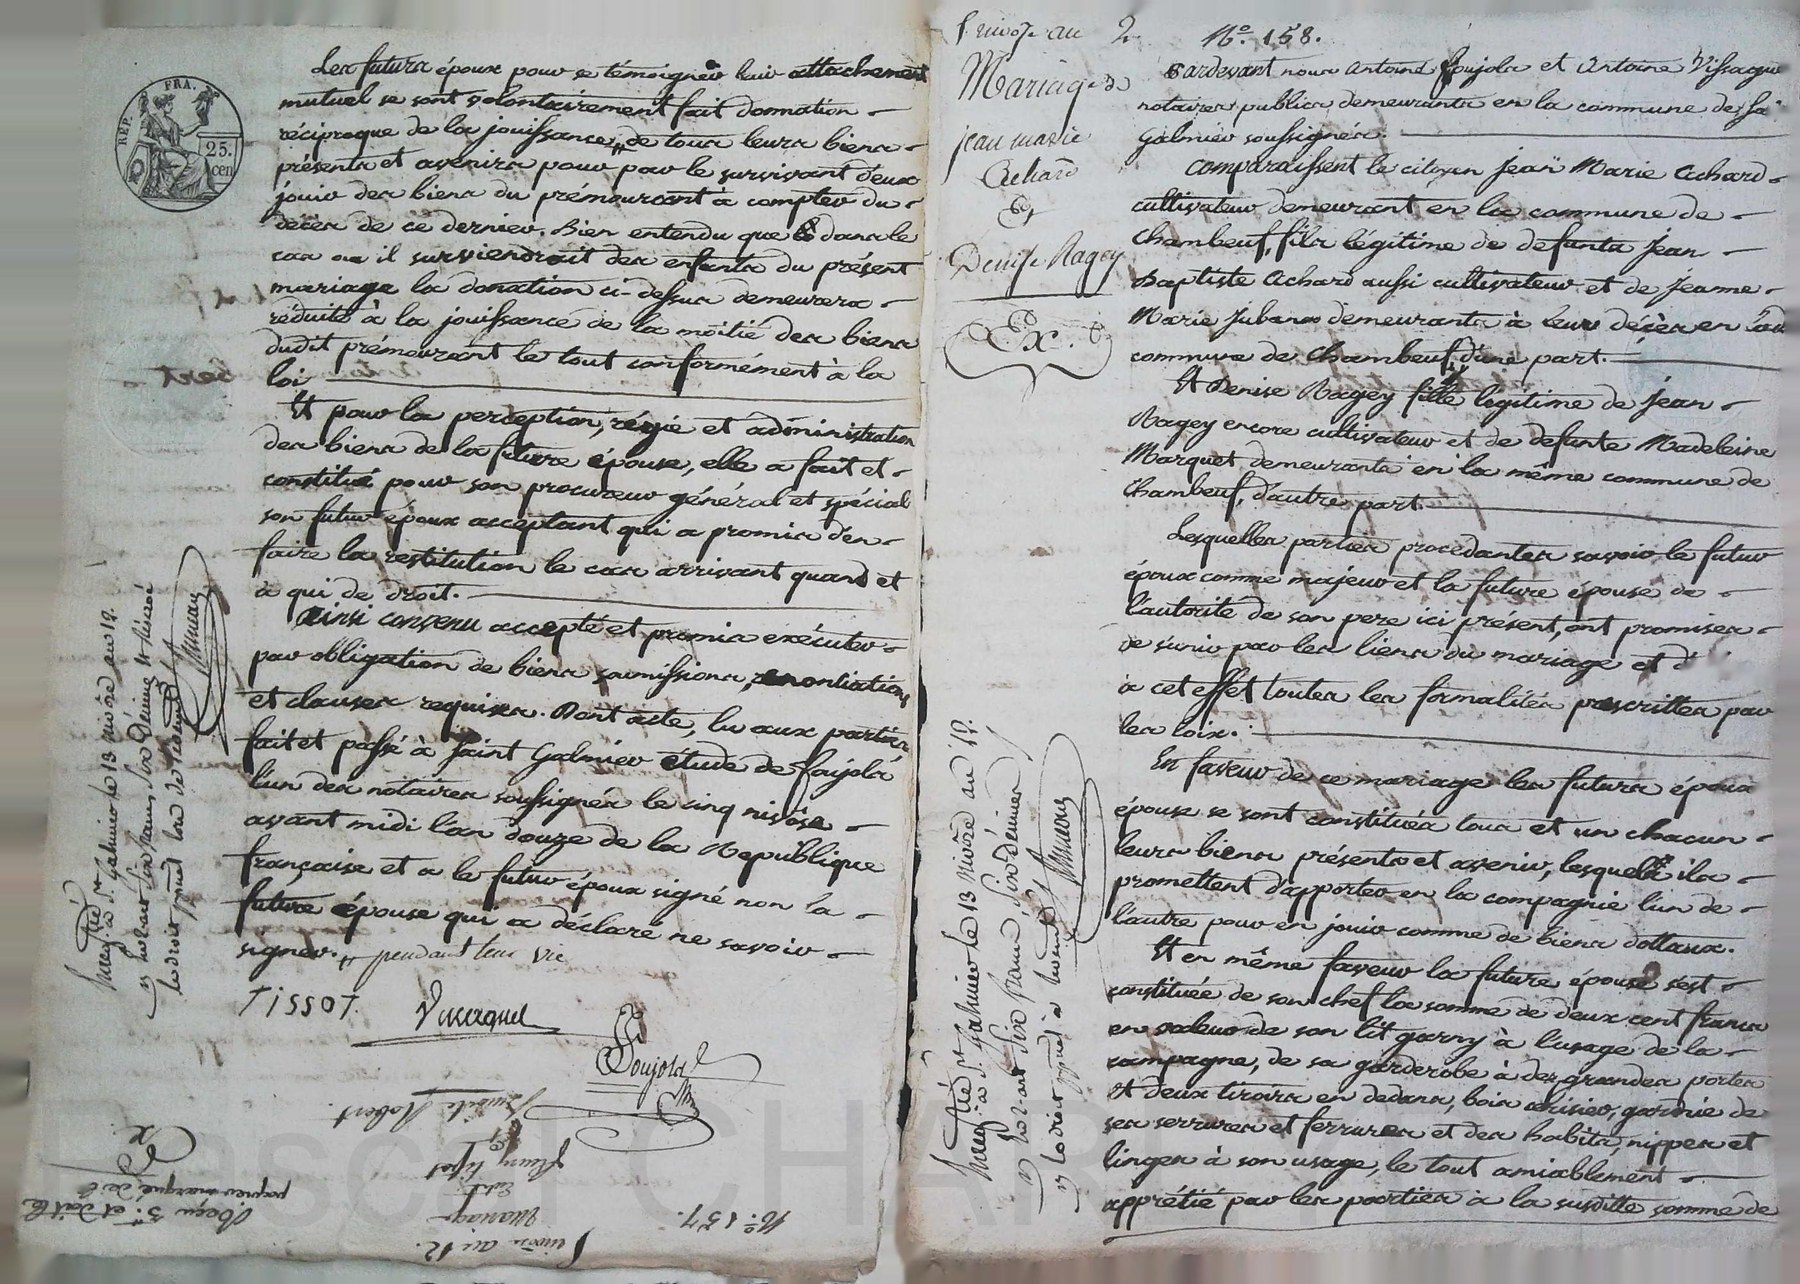 REP. FRA.
25.
cen
Les futurs époux pour se témoigner leur attachement
mutuel se sont volontairement fait donnation
réciproque de la jouissance, de tous leurs biens
présents et avenirs pour par le survivant d'eux
jouir des biens du prémourant à compter du
décès de ce dernier. Bien entendu que dans le
cas ou il surviendrait des enfants du présent
mariage la donation ci-dessus demeurera
réduite à la jouissance de la moitié des biens
dudit prémourant le tout conformément à la
loi
Et pour la perception, régie et administration
des biens de la future épouse, elle a fait et
constitué pour son procureur général et spécial
son futur époux acceptant qui a promis d'en
faire la restitution le cas arrivant quand et
à qui de droit.
Ainsi convenu accepté et promis exécuter
par obligation de biens soumissions, renontiations
et clauses requises. Dont acte, lu aux parties
fait et passé à Saint Galmier étude de Foujols
l'un des notaires soussignés le cinq nivôse
avant midi l'an douze de la République
française et a le futur époux signé non la
future épouse qui a déclaré ne savoir
signer. pendant leur vie
TISSOT.
Vissaguet
Foujols
à St. Galmier le 13 nivôse an 12.
Robert
Mariage
No. 157.
5 nivôse an 12.
5 nivôse an 12. No. 158.
Mariage de
jean marie
Achard
&
Denise Ragey
Ex.
Pardevant nous Antoine Foujols et Antoine Vissaguet
notaires publics demeurants en la commune de St.
Galmier soussignés.
Comparaissent le citoyen Jean Marie Achard
cultivateur demeurant en la commune de
Chambeuf, fils légitime de defunts Jean
Baptiste Achard aussi cultivateur et de Jeanne
Marie Juban demeurants à leurs décès en
commune de Chambeuf, d'une part.
Et Denise Ragey fille légitime de Jean
Ragey encore cultivateur et de defunte Madeleine
Marquet demeurants en la même commune de
Chambeuf, d'autre part.
Lesquelles parties procédantes savoir le futur
époux comme majeur et la future épouse de
l'autorité de son pere ici présent, ont promises
de s'unir par les liens du mariage et d'
à cet effet toutes les formalités prescrittes par
les loix.
En faveur de ce mariage les futurs époux
épouse se sont constitués tous et un chacun
leurs biens présents et avenir, lesquels ils
promettent d'apporter en la compagnie l'un de
l'autre pour en jouir comme de biens dottaux.
Et en même faveur la future épouse s'est
constituée de son chef la somme de deux cent francs
en valeur de son lit garny à l'usage de la
campagne, de sa garderobe à deux grandes portes
et deux tiroirs en dedans, bois cerisier, garnie de
ses serrures et ferrures et des habits, nippes et
linges à son usage, le tout amiablement
apprétié par les parties à la susditte somme de
à St. Galmier le 13 nivôse an 12.